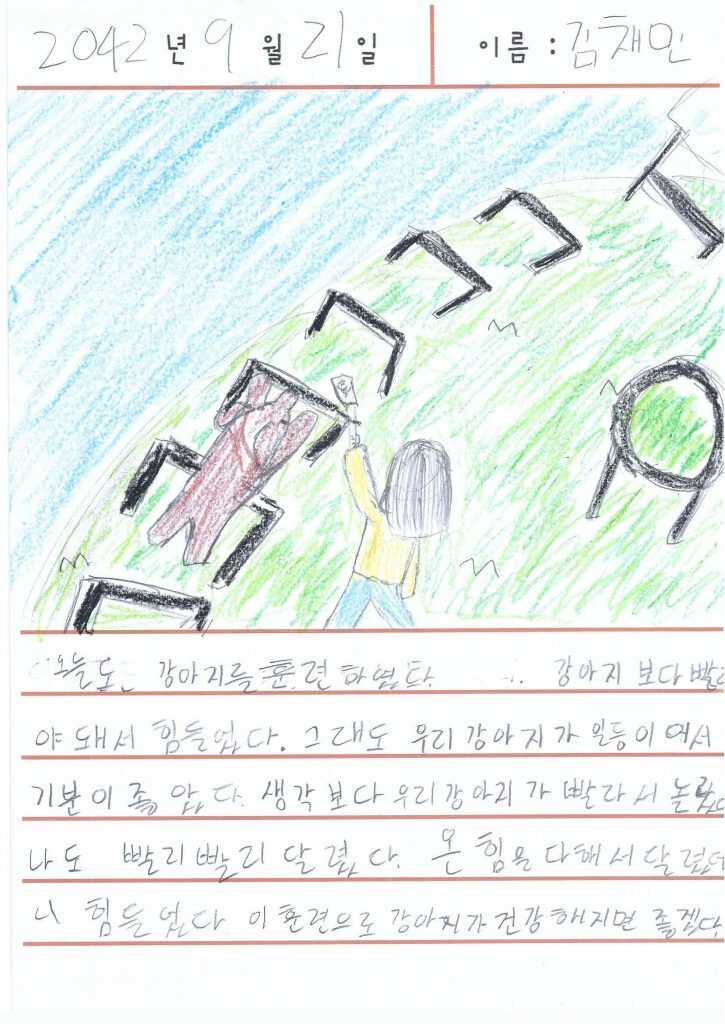 2042년 9월 21일 이름 : 김채민
오늘도 강아지를 훈련하였다. 강아지 보다 빨라
야 돼서 힘들었다. 그래도 우리 강아지가 일등이여서
기분이 좋았다. 생각보다 우리 강아지가 빨라서 놀랐다
나도 빨리빨리 달렸다. 온 힘을 다해서 달렸더
니 힘들었다. 이 훈련으로 강아지가 건강해지면 좋겠다.